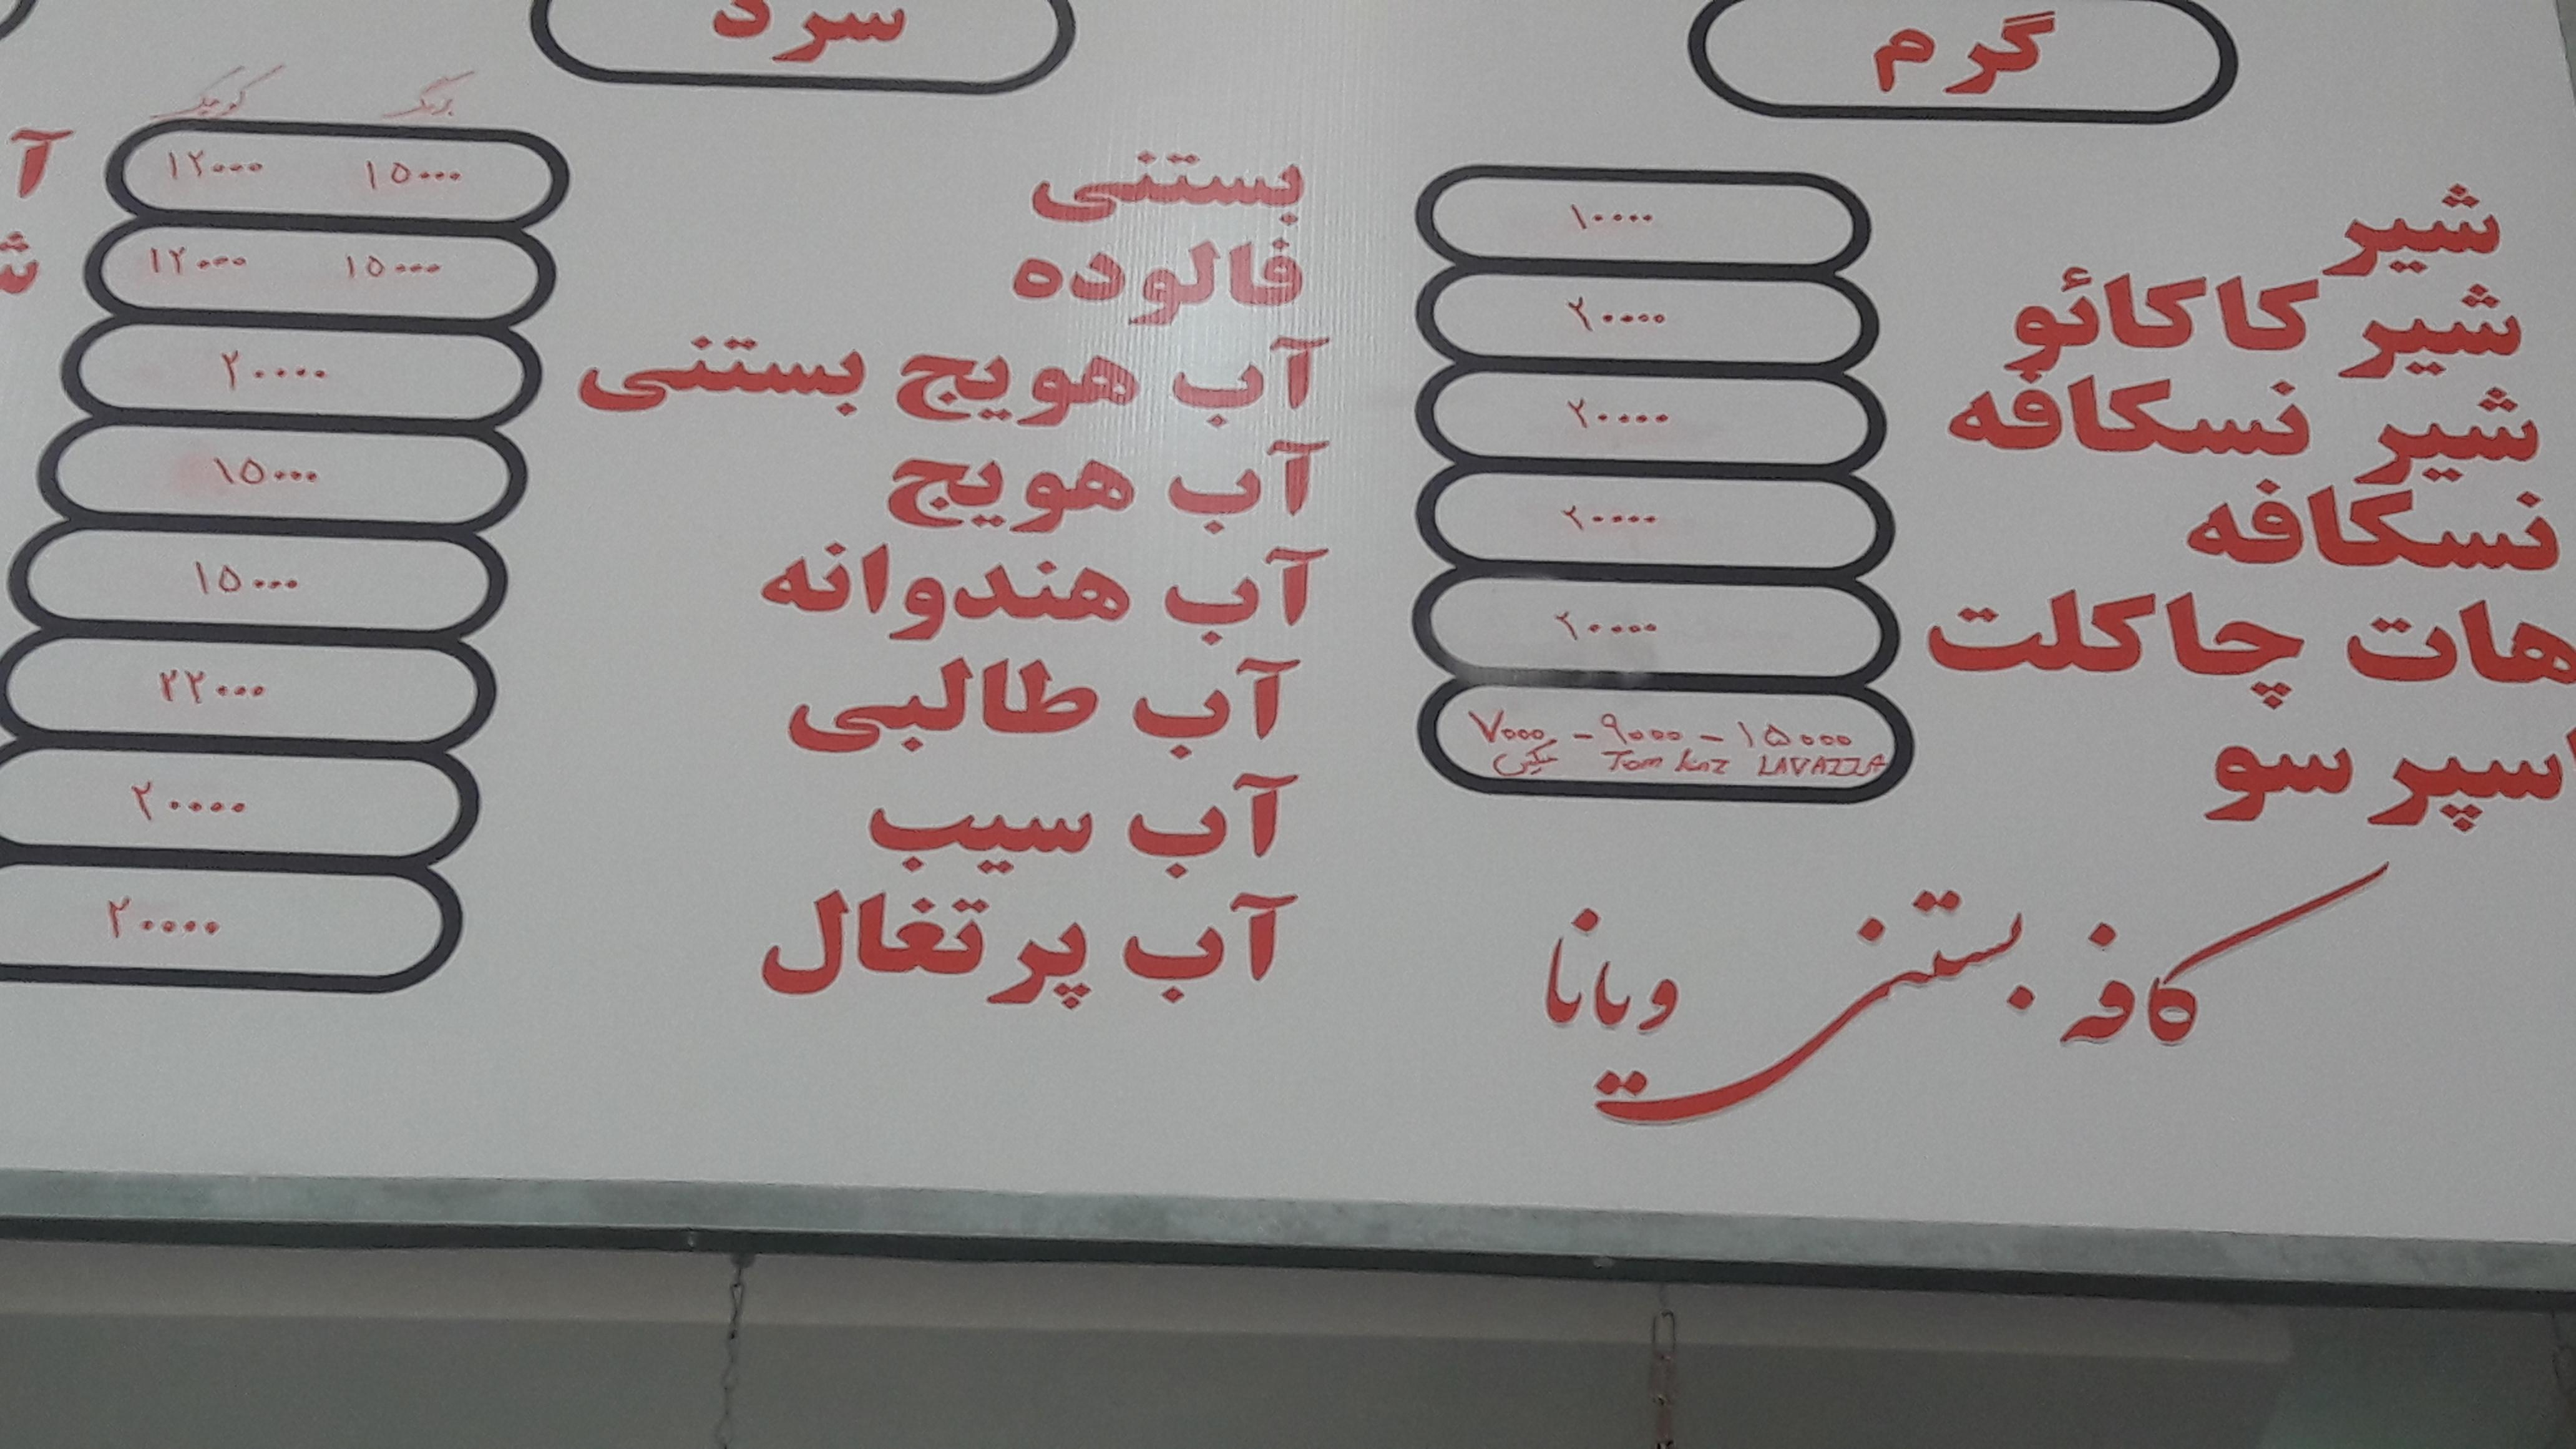 گرم
شیر ۱۰۰۰۰
شیر کاکائو ۲۰۰۰۰
شیر نسکافه ۲۰۰۰۰
نسکافه ۲۰۰۰۰
هات چاکلت ۲۰۰۰۰
اسپر سو ۷۰۰۰ - ۹۰۰۰ - ۱۵۰۰۰
میکس Tom kinz LAVAZZA
کافه بستنی ویانا
سرد
بزرگ کوچک
بستنی ۱۵۰۰۰ ۱۲۰۰۰
فالوده ۱۵۰۰۰ ۱۲۰۰۰
آب هویج بستنی ۲۰۰۰۰
آب هویج ۱۵۰۰۰
آب هندوانه ۱۵۰۰۰
آب طالبی ۲۲۰۰۰
آب سیب ۲۰۰۰۰
آب پرتغال ۲۰۰۰۰